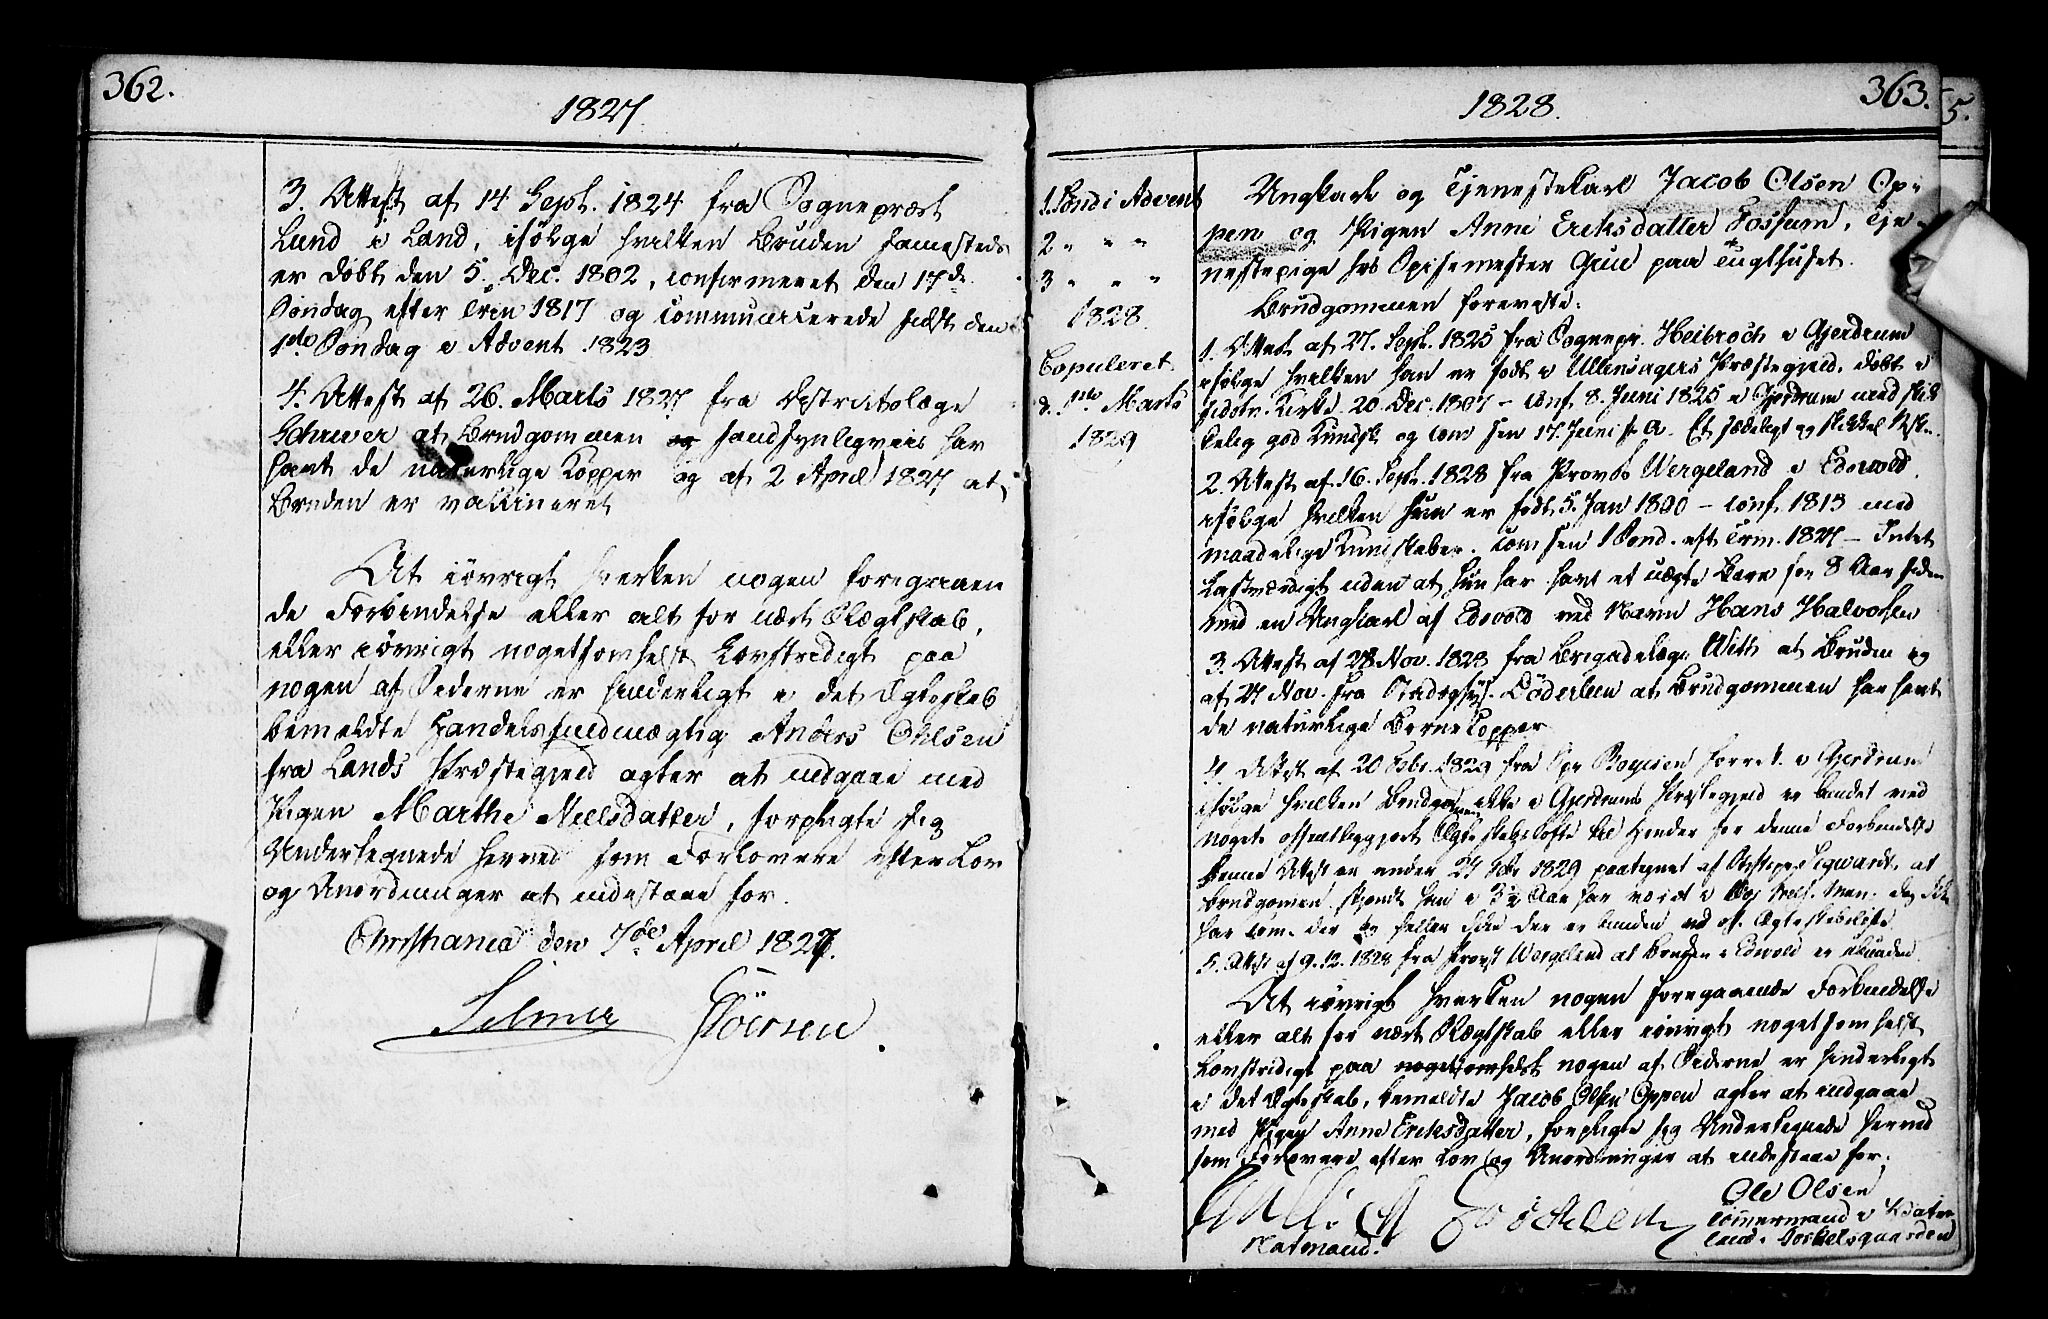 362.
1827
3. Attest af 14 Sept. 1824 fra Sognepræst
Lund i Land, ifølge hvilken Bruden sammesteds
er døbt den 5. Dec. 1802, confirmeret den 17de
Søndag efter Trin 1817 og communicerede sidst den
1ste Søndag i Advent 1823
4. Attest af 26. Marts 1827 fra Districtslæge
Schriver at Brudgommen sandsynligviis har
havt de naturlige Kopper og af 2 April 1827 at
Bruden er vaccineret
At iøvrigt hverken nogen foregaaen
de Forbindelse eller alt for nært Slægtskab,
eller iøvrigt nogetsomhelst Lovstridigt paa
nogen af Siderne er hinderligt i det Ægteskab
bemeldte Handelsfuldmægtig Anders Ohlsen
fra Lands Præstegjeld agter at indgaae med
Pigen Marthe Nielsdatter, forpligte sig
Undertegnede herved som Forlovere efter Lov
og Anordninger at indestaae for.
Christiania den 7de April 1827.
Selmer Støersen
363.
1828.
5.
1. Sønd i Advent
2 " " "
3 " " "
1828.
Copuleret
d. 1ste Marts
1829
Ungkarl og Tjenestekarl Jacob Olsen Op-
pen og Pigen Anne Eriksdatter Fossum, Tje-
nestepige hos Spisemester paa Tugthuset.
Brudgommen foreviste:
1. Attest af 27. Sept. 1825 fra Sognepr. Heibroch i Gjerdrum
ifølge hvilken han er født i Ullensagers Præstegjeld, døbt i
Kirke 20 Dec. 1807 - conf. 8. Juni 1825 i Gjerdrum med
god Kundsk. og com sen 17. Juni s. A. Et sædeligt og
2. Attest af 16. Sept. 1828 fra Provst Wergeland i Edsvold
ifølge hvilken hun er født 5. Jan 1800 - conf. 1815 med
maadelige Kundskaber. com sen 1 Sønd. eft Trin. 1827 - Intet
Lastværdigt uden at hun har havt et uægte Barn for 8 Aar siden
med en Ungkarl af Edsvold ved Navn Hans Halvorsen
3. Attest af 28 Nov. 1828 fra Brigadelæge With at Bruden og
af 27 Nov. fra Stadsphys. Döderlein at Brudgommen har havt
de naturlige Børnekopper
4. Attest af 20 Febr. 1829 fra i Gjerdrum
ifølge hvilken Brudgommen ikke i Gjerdrums Præstegjeld er bundet ved
noget offentliggjort Ægteskabsløfte til Hinder for denne Forbindelse
Denne Attest er under 27 Febr 1829 paategnet af Sigwardt, at
Brudgommen, skjøndt han i 3½ Aar har været i
har com. der ei heller der er bunden ved off. Ægteskabsløfte
5. Attest af 9.12.1828 fra Provst Wergeland at Bruden i Edsvold er ubunden
At iøvrigt hverken nogen foregaaende Forbindelse
eller alt for nært Slægtskab eller iøvrigt nogetsomhelst
Lovstridigt paa nogetsomhelst nogen af Siderne er hinderligt
i det Ægteskab, bemeldte Jacob Olsen Oppen agter at indgaae
med Pigen Anne Eriksdatter, forpligte sig Undertegnede herved
som Forlovere efter Lov og Anordninger at indestaae for.
Ole Olsen
Tømmermand i Vater
land